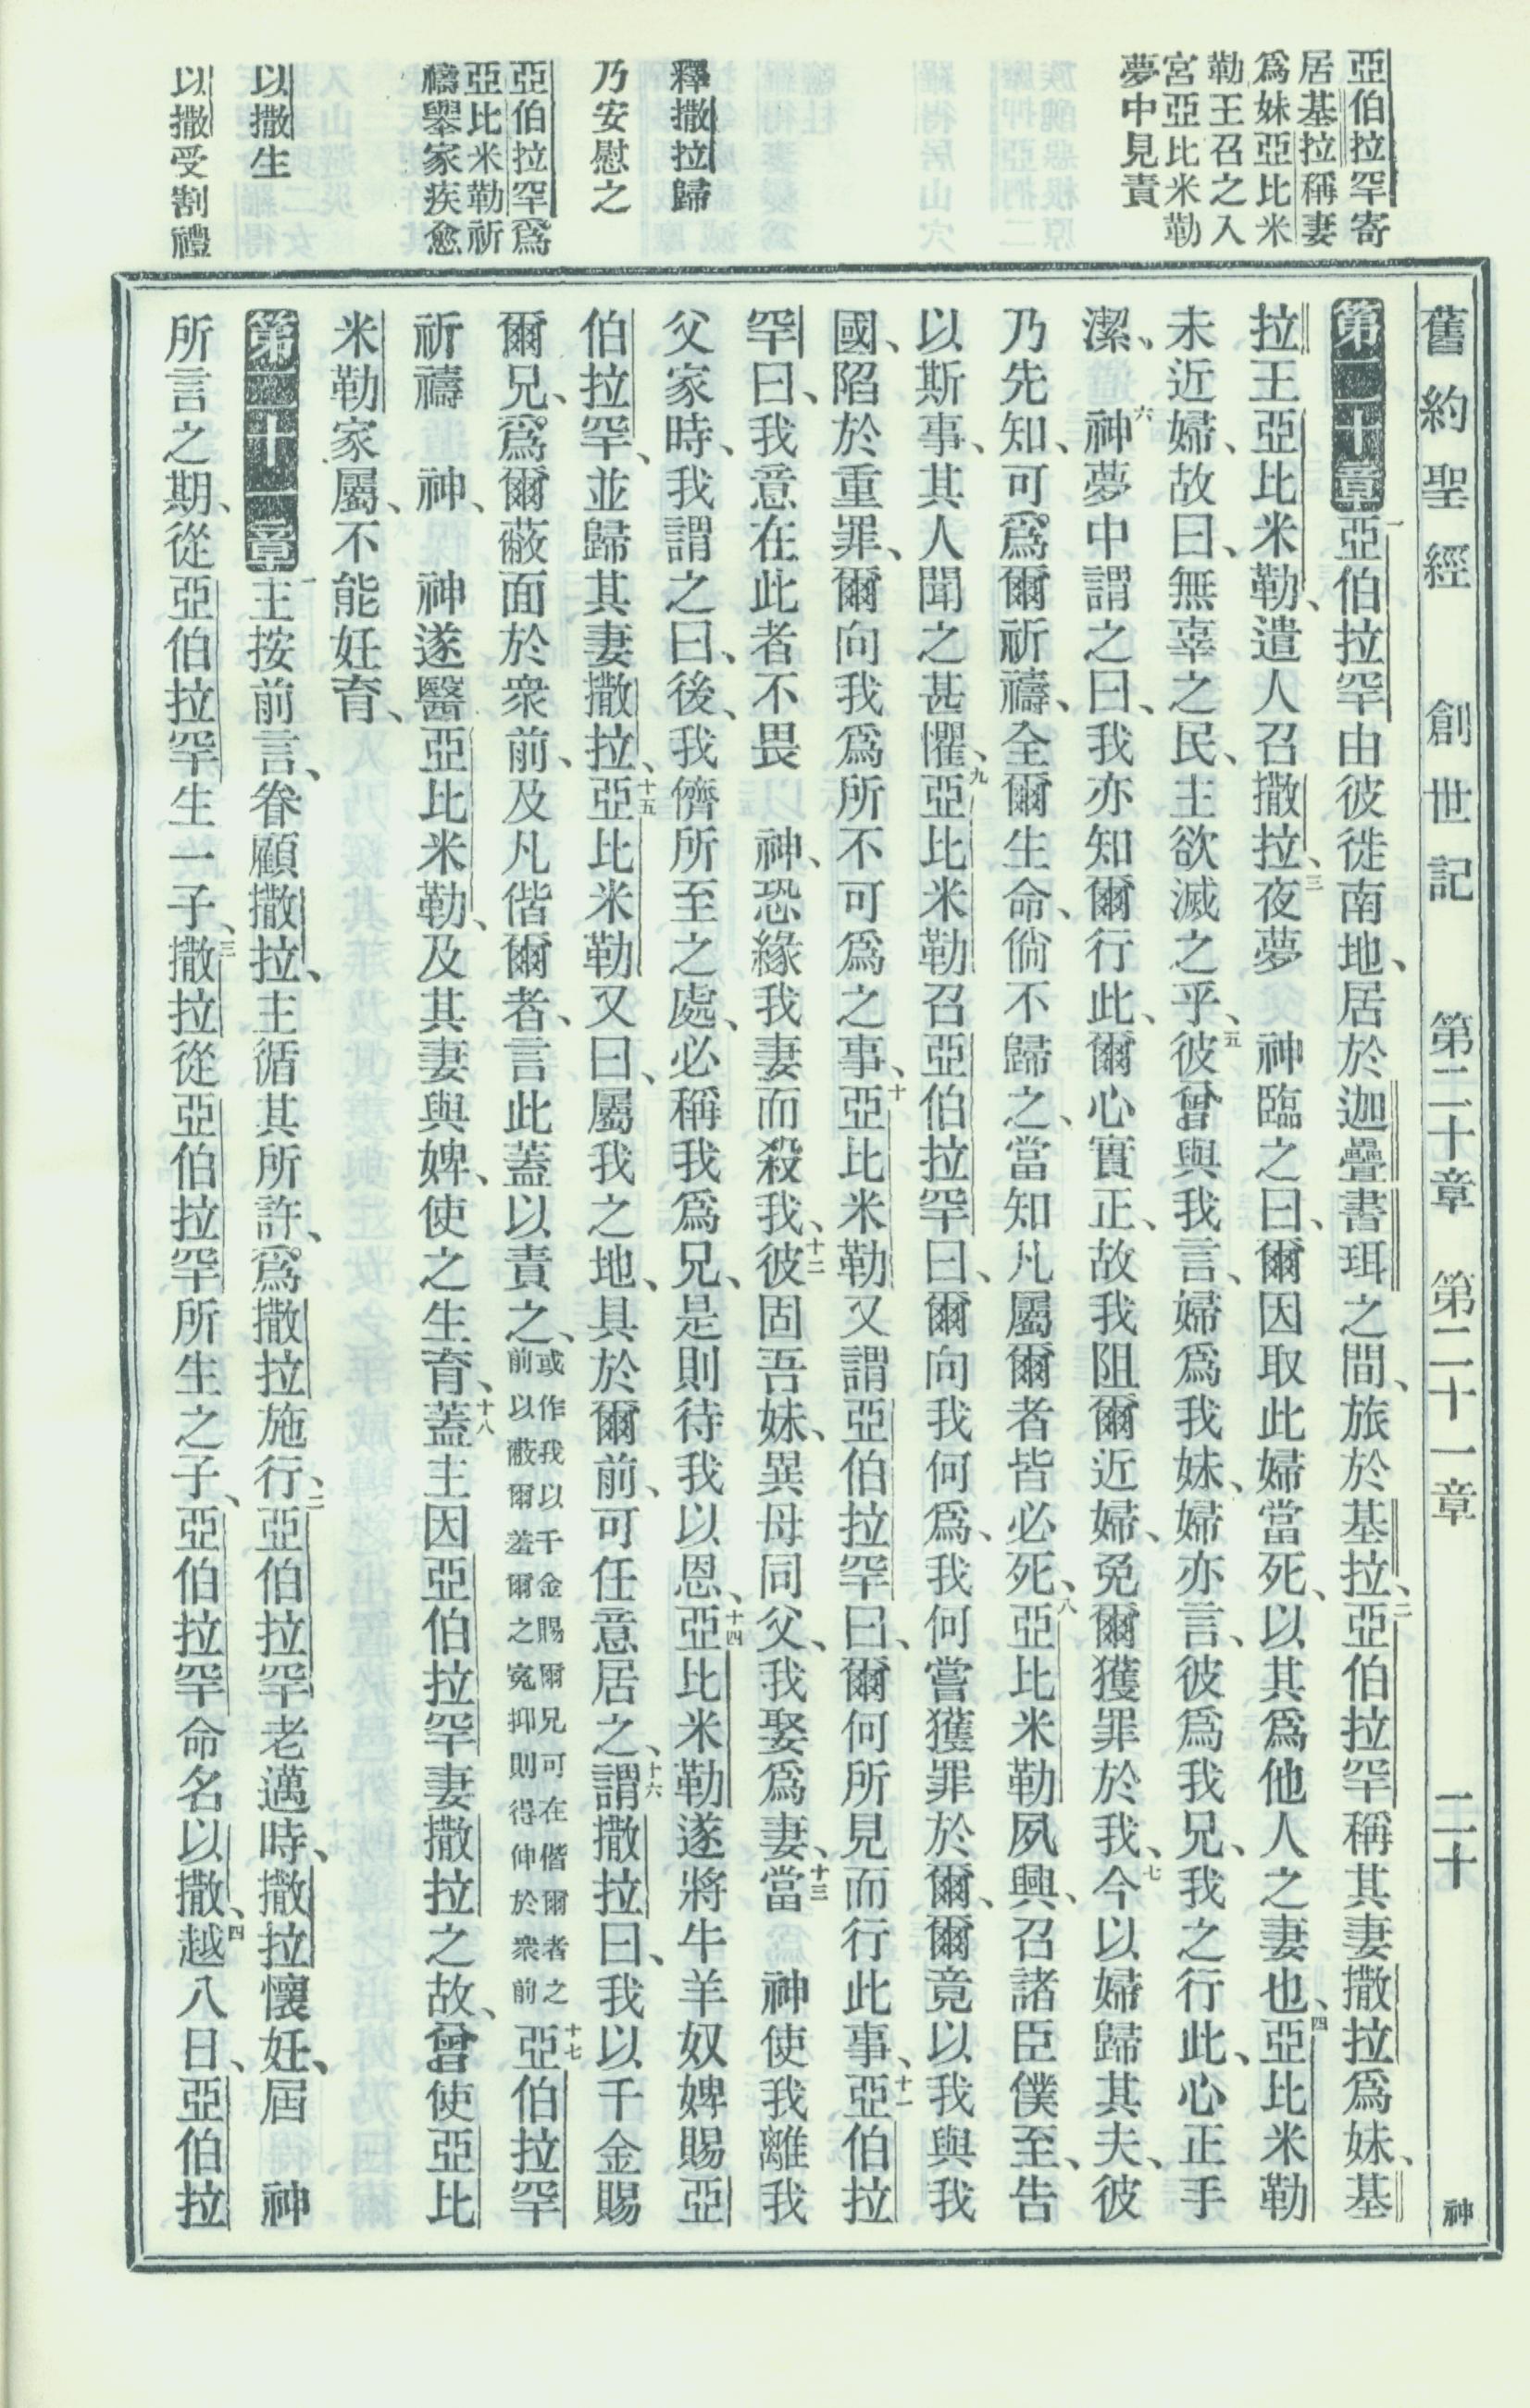 亞伯拉罕寄
居基拉稱妻
爲妹亞比米
勒王召之入
宮亞比米勒
夢中見責
釋撒拉歸
乃安慰之
亞伯拉罕爲
亞比米勒祈
禱舉家疾愈
以撒生
以撒受割禮
舊約聖經 創世記 第二十章 第二十一章 二十 神
第二十章 一亞伯拉罕由彼徙南地、居於迦疊書珥之間、旅於基拉、二亞伯拉罕稱其妻撒拉爲妹、基
拉王亞比米勒、遣人召撒拉、三夜夢 神臨之曰、爾因取此婦當死、以其爲他人之妻也、四亞比米勒
未近婦、故曰、無辜之民、主欲滅之乎、五彼曾與我言、婦爲我妹、婦亦言、彼爲我兄、我之行此、心正手
潔、六神夢中謂之曰、我亦知爾行此、爾心實正、故我阻爾近婦、免爾獲罪於我、七今以婦歸其夫、彼
乃先知、可爲爾祈禱、全爾生命、倘不歸之、當知凡屬爾者皆必死、八亞比米勒夙興、召諸臣僕至、告
以斯事、其人聞之甚懼、九亞比米勒召亞伯拉罕曰、爾向我何爲、我何嘗獲罪於爾、爾竟以我與我
國、陷於重罪、爾向我爲所不可爲之事、十亞比米勒又謂亞伯拉罕曰、爾何所見而行此事、十一亞伯拉
罕曰、我意在此者不畏 神、恐緣我妻而殺我、十二彼固吾妹、異母同父、我娶爲妻、十三當 神使我離我
父家時、我謂之曰、後、我儕所至之處、必稱我爲兄、是則待我以恩、十四亞比米勒遂將牛羊奴婢賜亞
伯拉罕、並歸其妻撒拉、十五亞比米勒又曰、屬我之地、具於爾前、可任意居之、十六謂撒拉曰、我以千金賜
爾兄、爲爾蔽面於衆前、及凡偕爾者、言此蓋以責之、或作我以千金賜爾兄可在偕爾者之前以蔽爾羞爾之寃抑則得伸於衆前 十七亞伯拉罕
祈禱 神、 神遂醫亞比米勒、及其妻與婢、使之生育、十八蓋主因亞伯拉罕妻撒拉之故、曾使亞比
米勒家屬、不能妊育、
第二十一章 一主按前言、眷顧撒拉、主循其所許、爲撒拉施行、二亞伯拉罕老邁時、撒拉懷妊、屆 神
所言之期、從亞伯拉罕生一子、三撒拉從亞伯拉罕所生之子、亞伯拉罕命名以撒、四越八日、亞伯拉